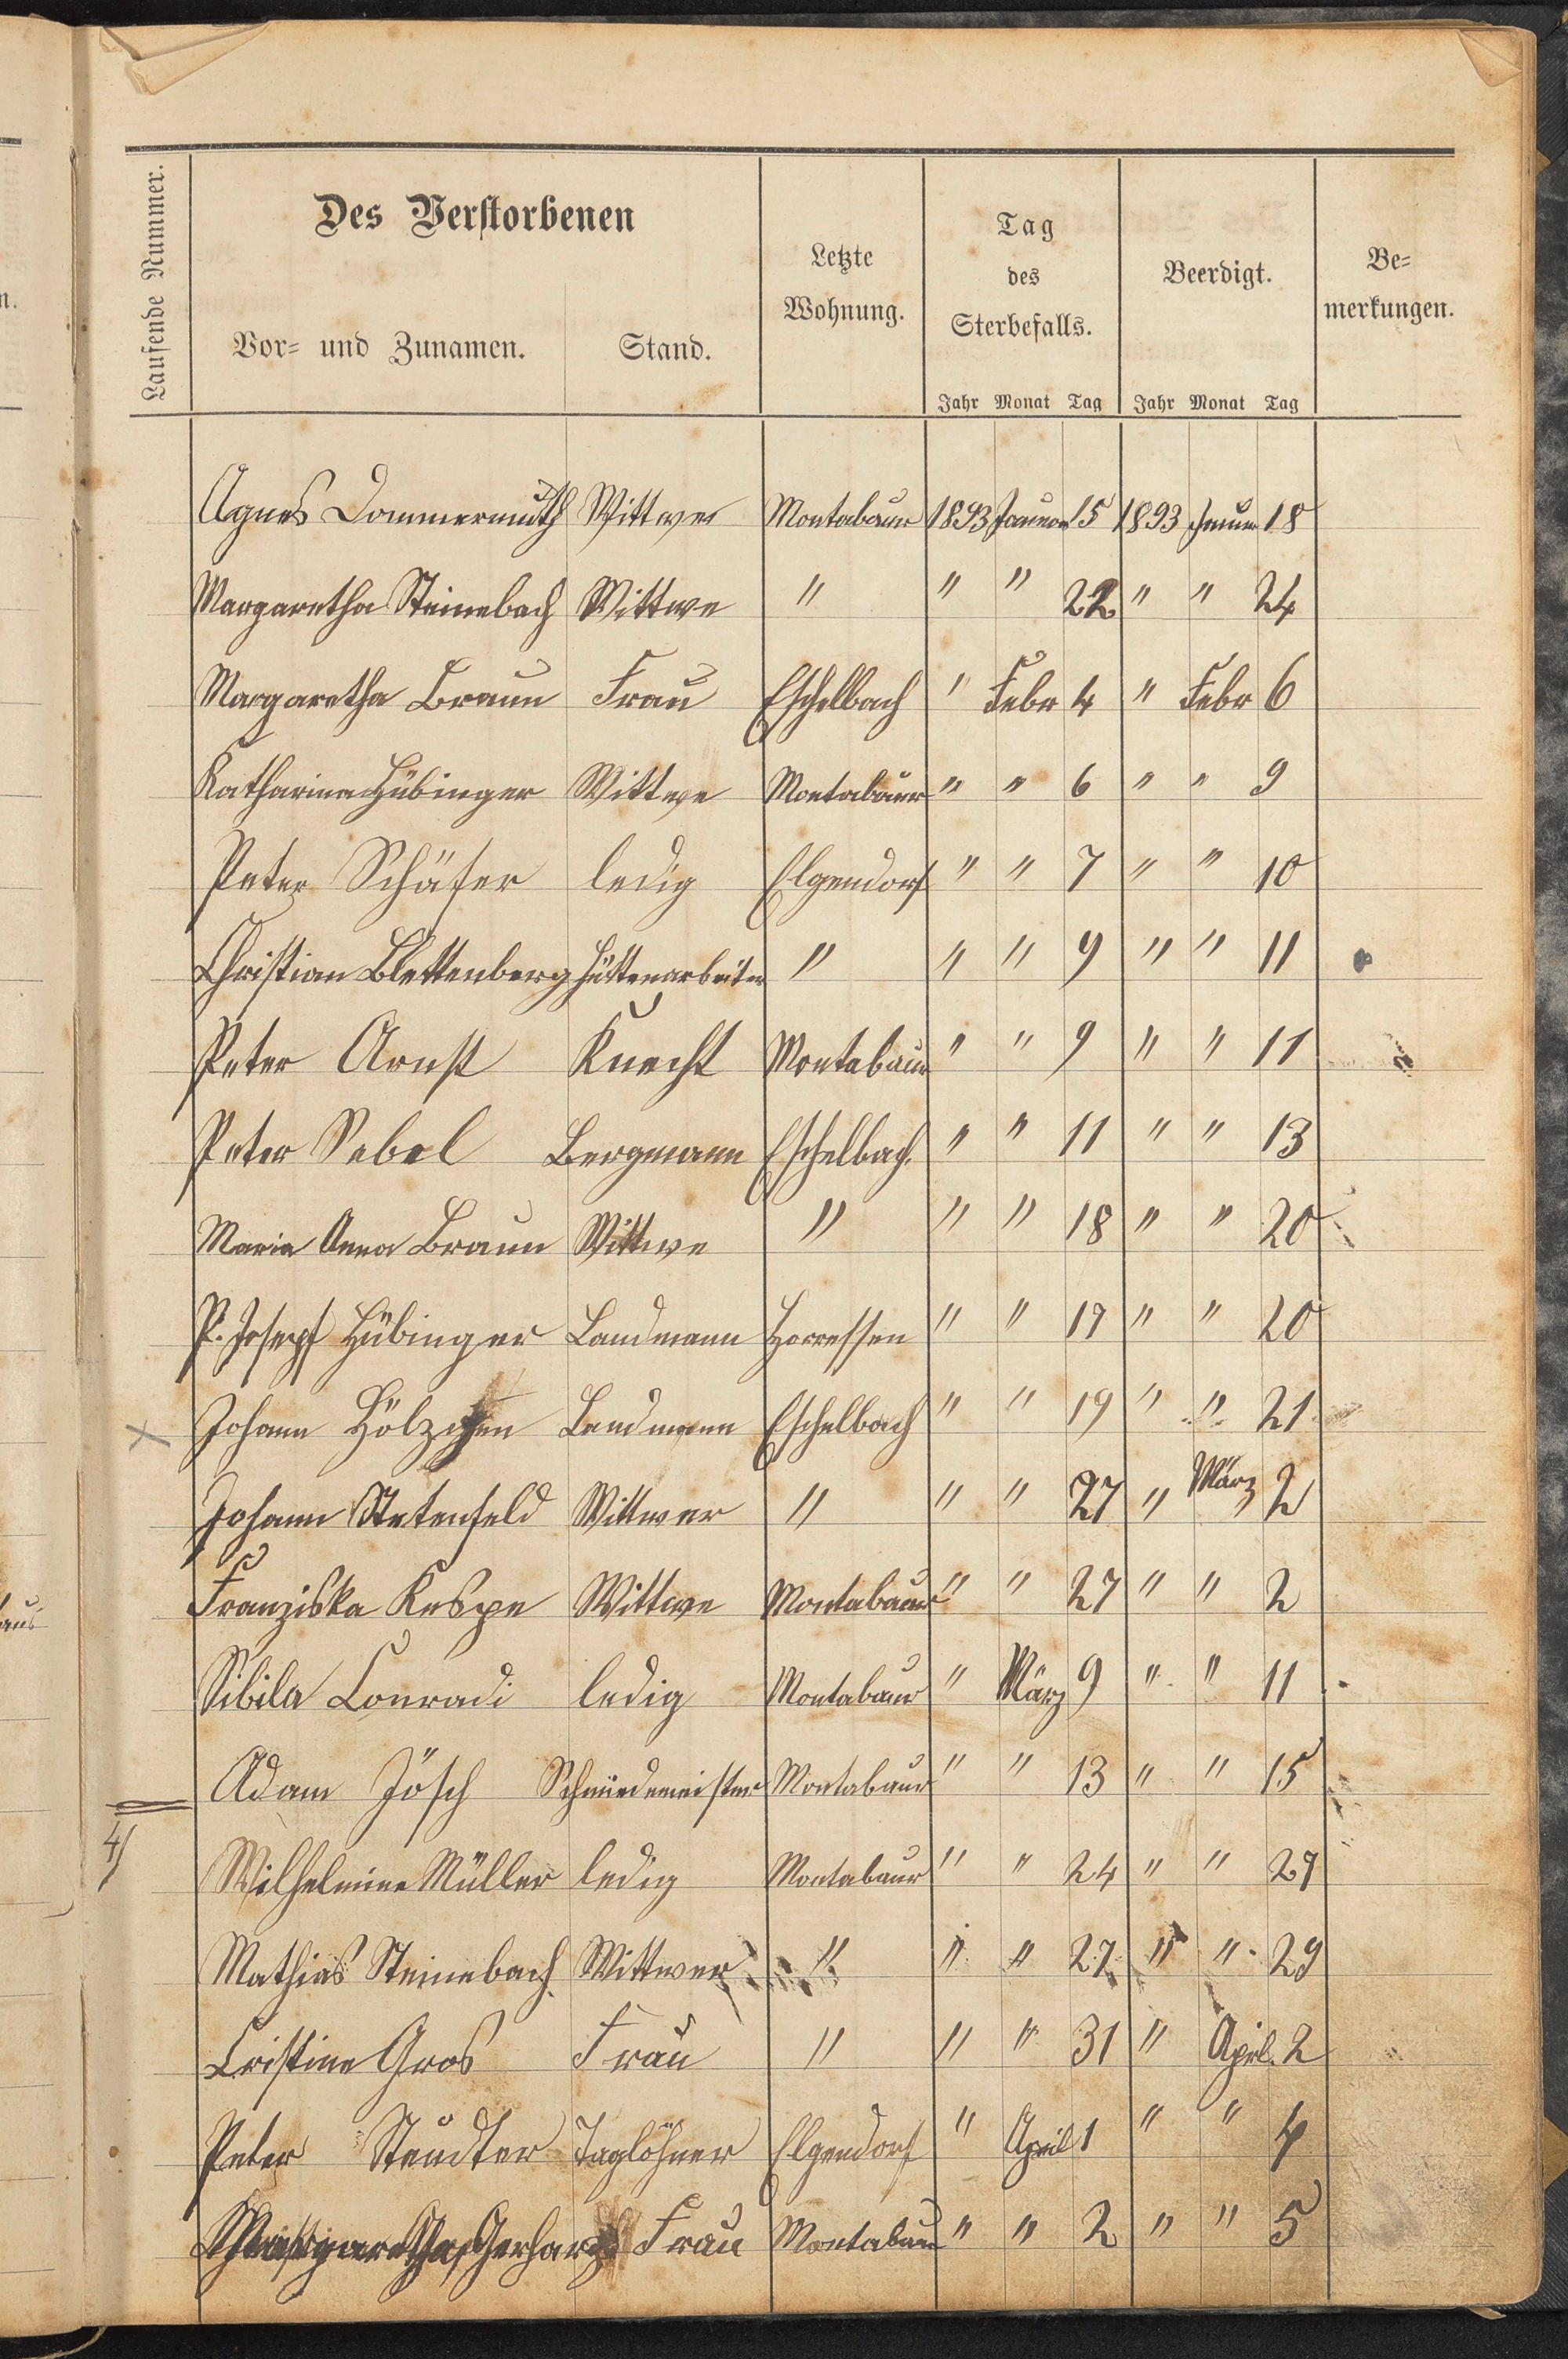 Laufende Nummer.
Des Verstorbenen
Vor- und Zunamen. Stand.
Letzte Wohnung.
Tag des Sterbefalls.
Beerdigt.
Be-
merkungen.
Jahr Monat Tag Jahr Monat Tag
Agnes Dommermuth Wittwe Montabaur 1893 Januar 15 1893 Januar 18
Margaretha Steinebach Wittwe " " " 22 " " 24
Margaretha Braun Frau Eschelbach " Febr 4 " Febr 6
Katharina Hübinger Wittwe Montabaur " " 6 " " 9
Peter Schäfer ledig Elgendorf " " 7 " " 10
Christian Blettenberg Hüttenarbeiter " " " 9 " " 11
Peter Arnst Knecht Montabaur " " 9 " " 11
Peter Sebel Bergmann Eschelbach. " " 11 " " 13
Maria Anna Braun Wittwe " " " 18 " " 20
P. Joseph Hübinger Landmann Horressen " " 19 " " 20
x Johann Hölzchen Landmann Eschelbach " " 19 " " 21
Johann Stetenfeld Wittwer " " " 27 " März 2
Franziska Kespe Wittwe Montabaur " " 27 " " 2
Sibila Conradi ledig Montabaur " März 9 " " 11
Adam Jösch Schmiedemeister Montabaur " " 13 " " 15
4) Wilhelmine Müller ledig Montabaur " " 24 " " 27
Mathias Steinebach Wittwer " " " 27 " " 29
Cristine Gros Frau " " " 31 " April. 2
Peter Steudter Taglöhner Elgendorf " April 1 " " 4
Margaretha Gerharz Frau Montabaur " " 2 " " 5